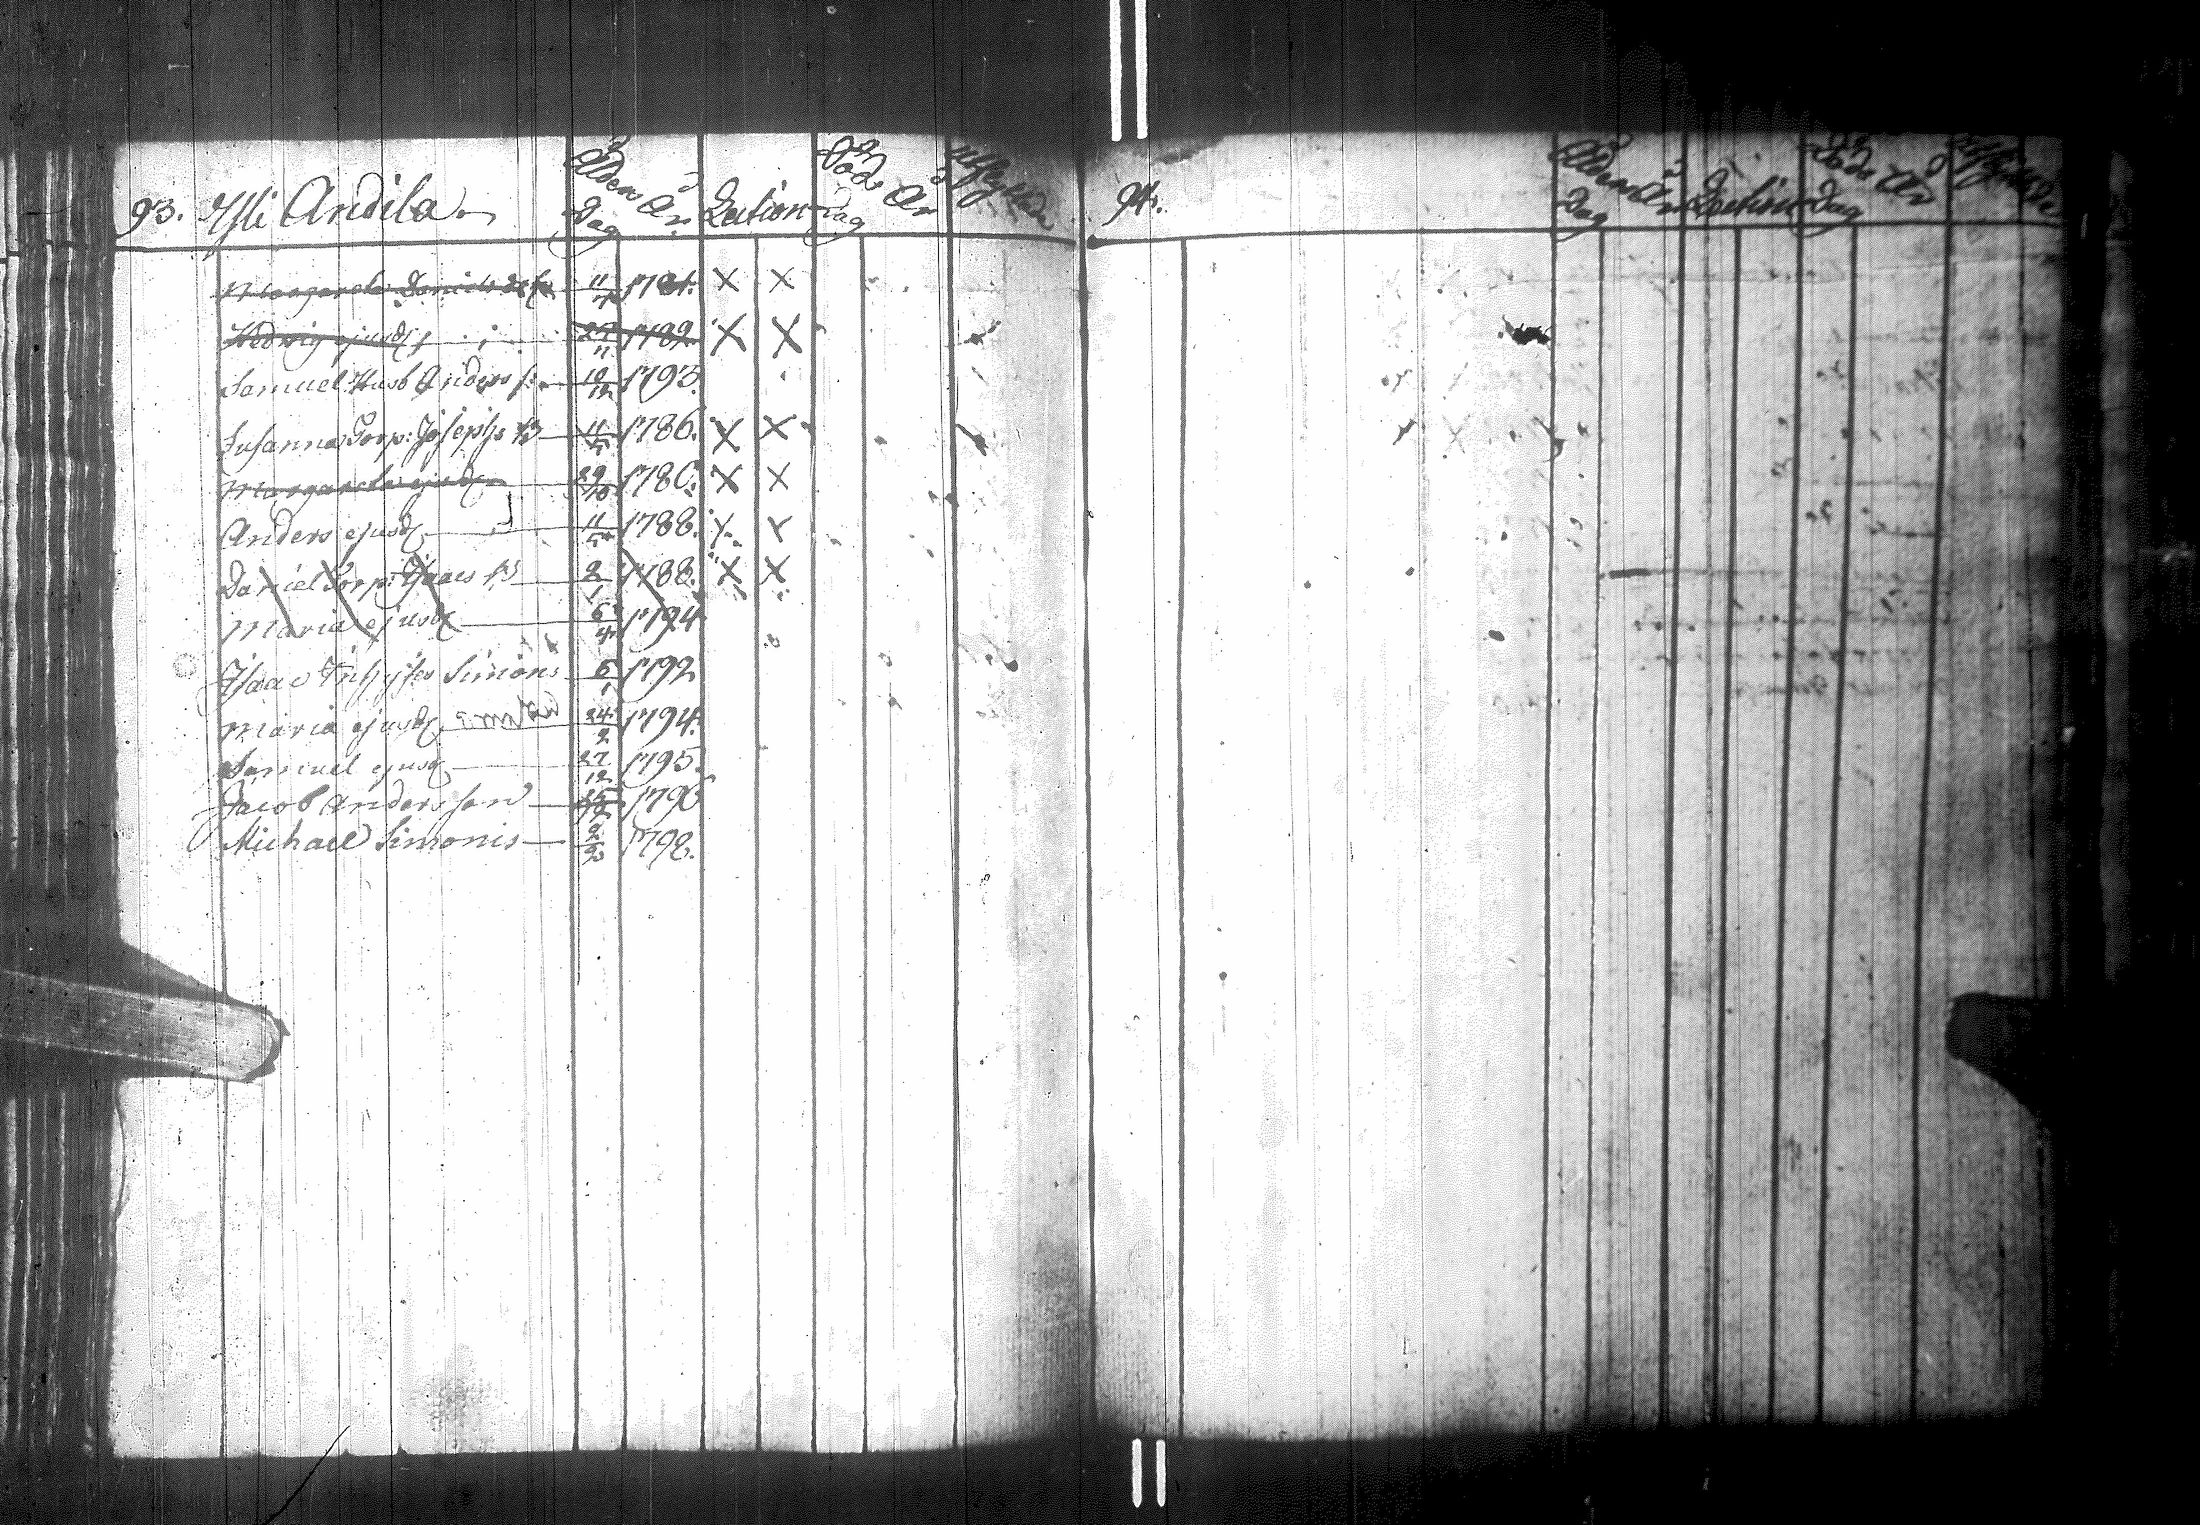 93. Ylli Andila.
Ålders Dag År Lection Död Dag År
Margareta Daniels 11 1781. X X
Hedvig ejusd 27/11 1782. X X
Samuel Husb Anders s. 10/12 1793.
Susanna Torp: Josephs 11 1786. X X
Margareta ejusd 29/10 1786. X X
Anders ejusd 11 1788. X X
Daniel Torp: Isaacs 2/1 1788. X X
Maria ejusd 6/4 1794
Isaac Inhyses Simons 6/1 1792
Maria ejusd 24/2 1794.
Samuel ejusd 27/12 1795.
Jacob Andersson 1796
Michael Simonis 1798.
94.
Ålders Dag År Lection Död Dag År